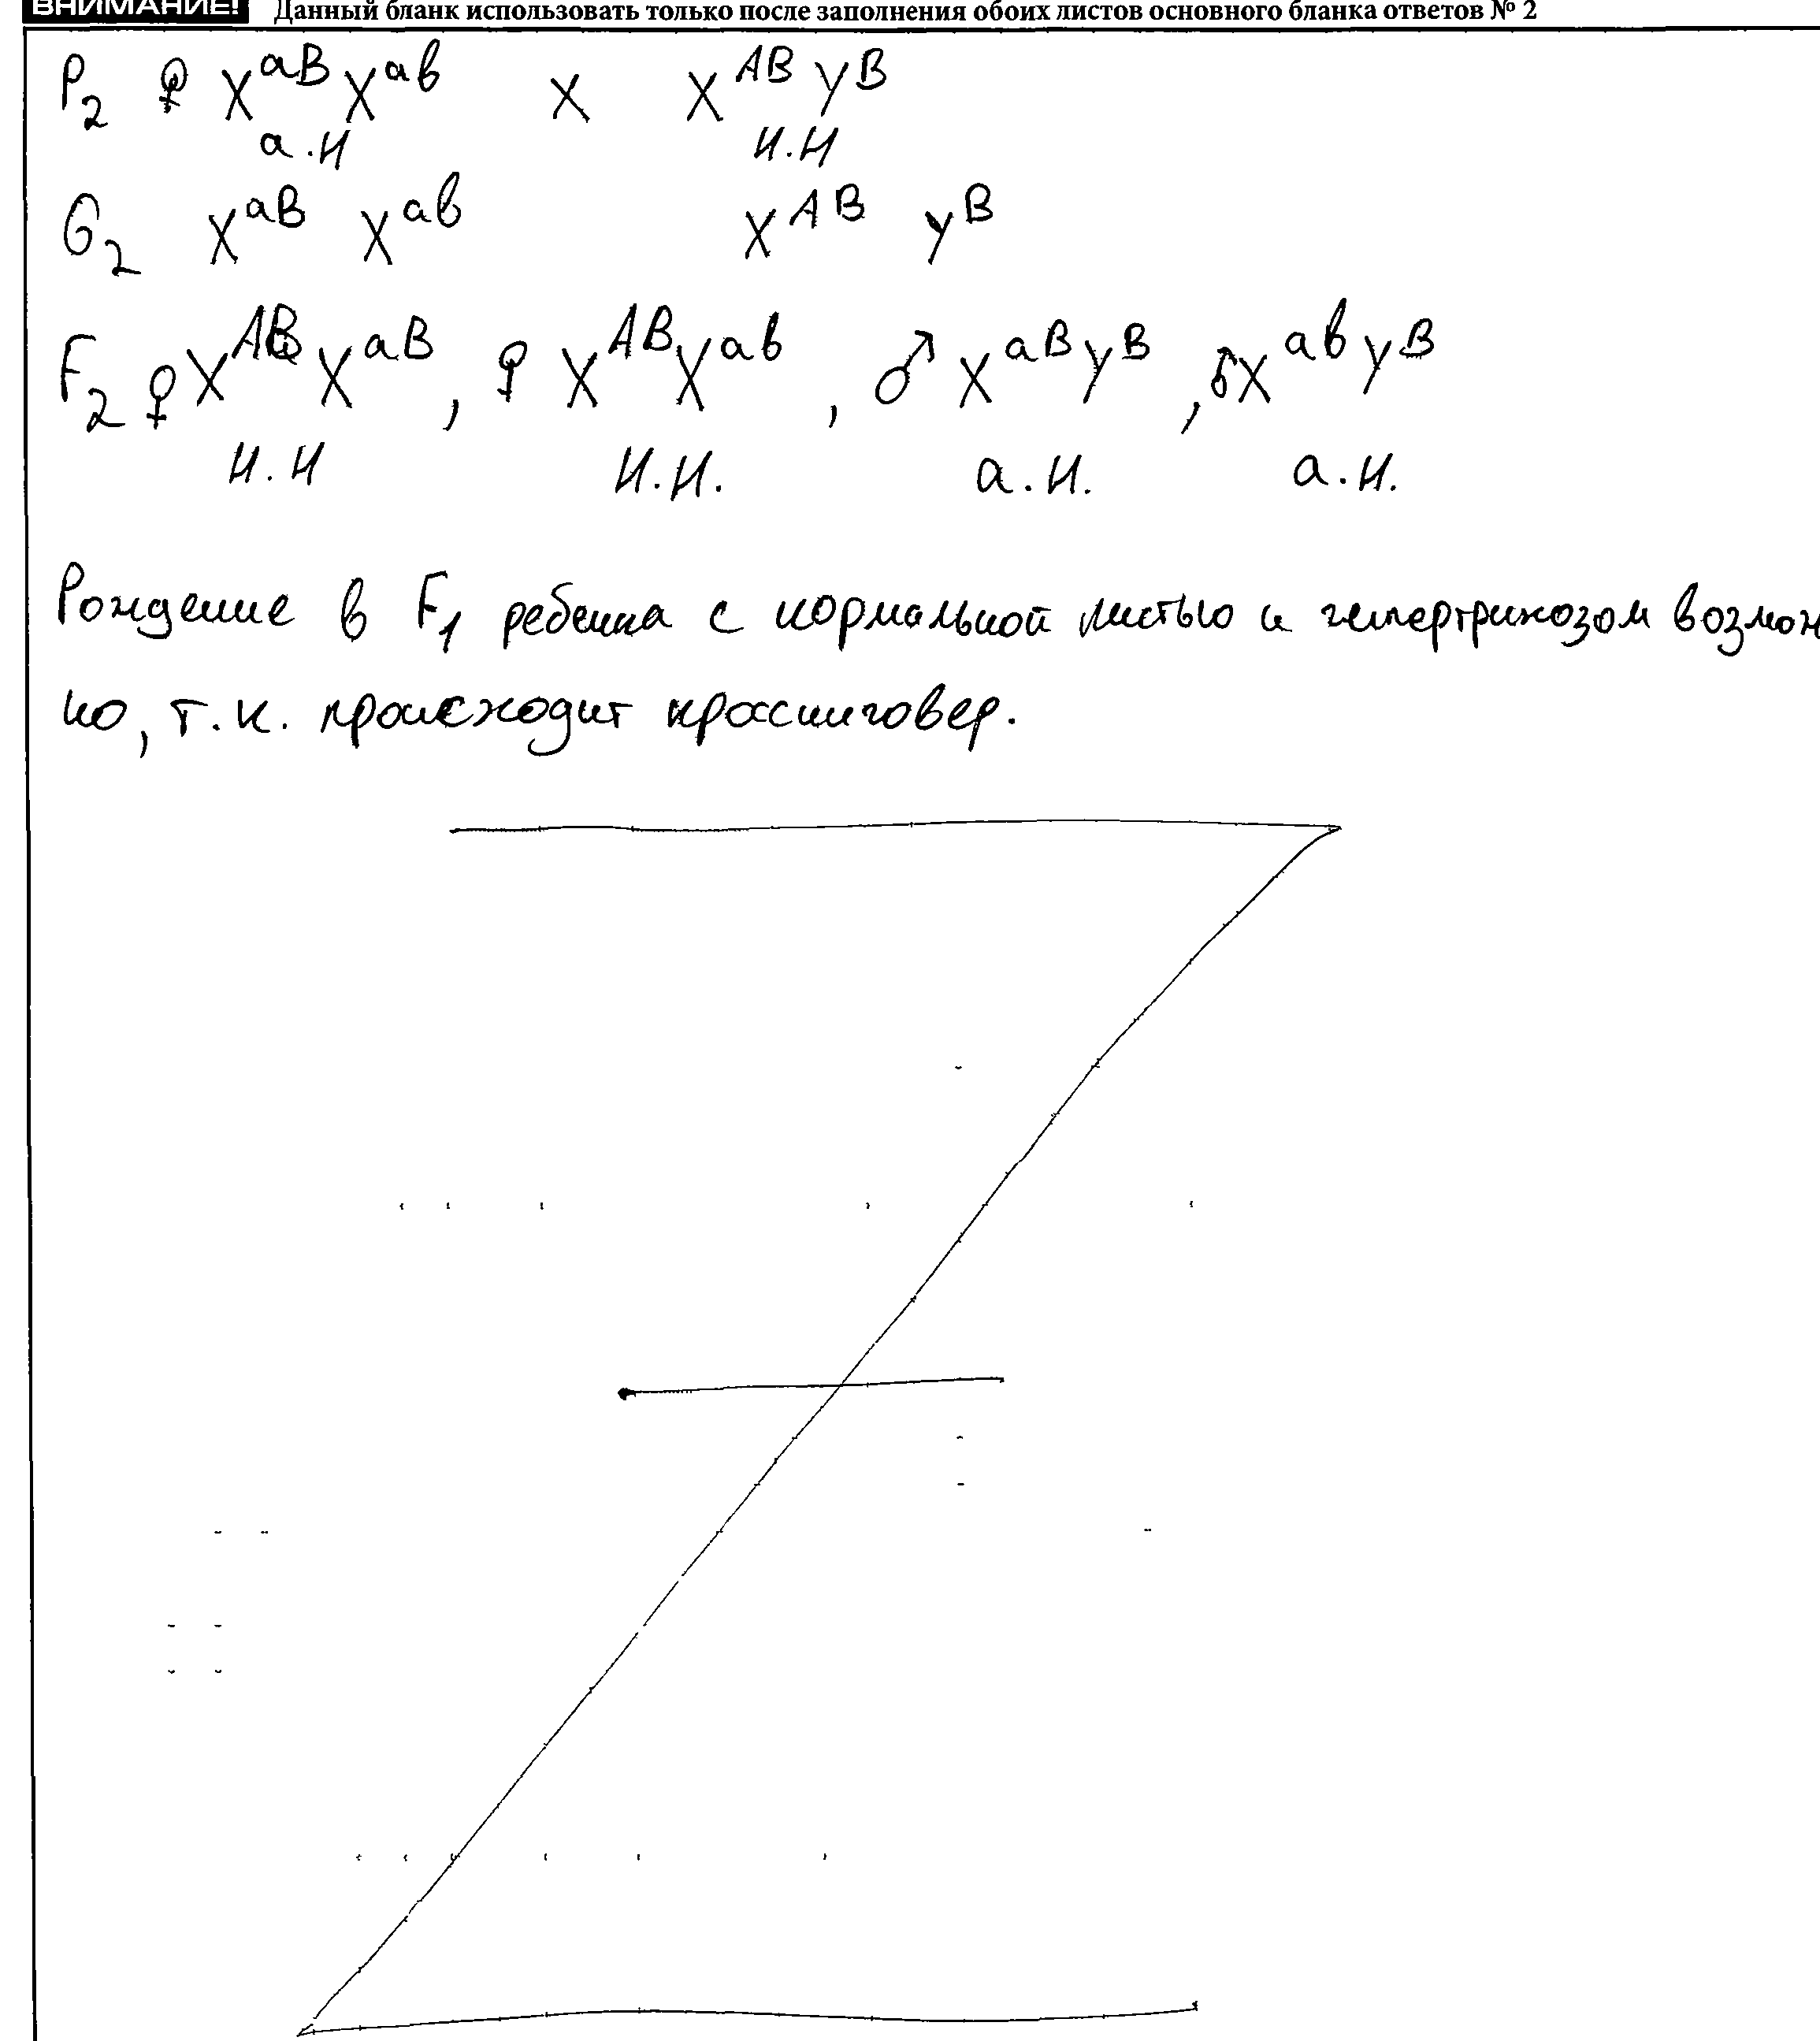 ВНИМАНИЕ! Данный бланк использовать только после заполнения обоих листов основного бланка ответов № 2
P₂ ♀ XᵃᴮXᵃᵇ x XᴬᴮYᴮ
а.Н Н.Н
G₂ Xᵃᴮ Xᵃᵇ Xᴬᴮ Yᴮ
F₂ ♀XᴬᴮXᵃᴮ, ♀ XᴬᴮXᵃᵇ, ♂ XᵃᴮYᴮ, ♂XᵃᵇYᴮ
Н.Н Н.Н. а.Н. а.Н.
Рождение в F₁ ребенка с нормальной листью и гипертрихозом возмож
но, т.к. происходит кроссинговер.